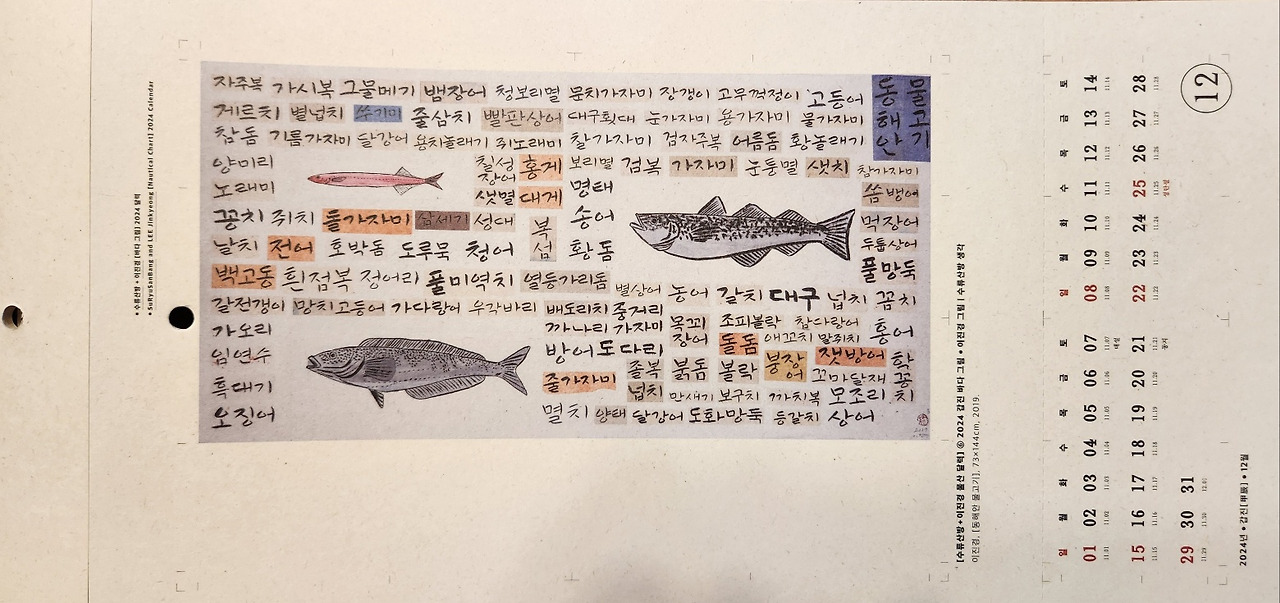 자주복 가시복 그물메기 뱀장어 청보리멸 문치가자미 장갱이 고무꺽정이 고등어
게르치 별넙치 쑤기미 줄삼치 빨판상어 대구횟대 눈가자미 용가자미 물가자미
참돔 기름가자미 달강어 용치놀래기 쥐노래미 찰가자미 검자주복 어름돔 황놀래기
동해안
물고기
양미리 칠성장어 홍게 보리멸 검복 가자미 눈퉁멸 샛치 참가자미
노래미 샛멸 대게 명태 쏨뱅어
꽁치 쥐치 돌가자미 삼세기 성대 복섬 송어 먹장어
날치 전어 호박돔 도루묵 청어 황돔 두툽상어
백고동 흰점복 정어리 풀미역치 열동가리돔 풀망둑
별상어 농어 갈치 대구 넙치 꼼치
갈전갱이 망치고등어 가다랑어 우각바리 배도라치 중거리
가오리 까나리 가자미 목꾀장어 조피볼락 참다랑어 홍어
임연수 방어 도다리 돌돔 애꼬치 말쥐치
흑대기 줄가자미 졸복 붉돔 볼락 붕장어 잿방어 학꽁치
넙치 만새기 보구치 까치복 꼬마달재 모조리
오징어 멸치 양태 달강어 도화망둑 등갈치 상어
2019
• 수류산방 • 이진경 [바다 그림] 2024 달력
• SuRyuSanBang and LEE Jinkyeong [Nautical Chart] 2024 Calendar
[수류산방+이진경 물산 달력] ⓒ 2024 갑진 바다 그림 • 이진경 그림 | 수류산방 생각
이진경, [동해안 물고기], 73×144cm, 2019.
12
일 월 화 수 목 금 토
01 02 03 04 05 06 07
11.01 11.02 11.03 11.04 11.05 11.06 11.07 대설
08 09 10 11 12 13 14
11.08 11.09 11.10 11.11 11.12 11.13 11.14
15 16 17 18 19 20 21
11.15 11.16 11.17 11.18 11.19 11.20 11.21 동지
22 23 24 25 26 27 28
11.22 11.23 11.24 11.25 성탄절 11.26 11.27 11.28
29 30 31
11.29 11.30 12.01
2024년 • 갑진[甲辰] • 12월